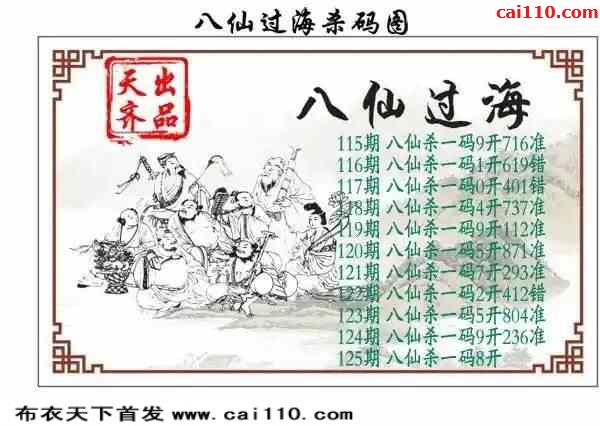 八仙过海杀码图
cai110.com
天齐出品
八仙过海
115期 八仙杀一码9开716准
116期 八仙杀一码1开619错
117期 八仙杀一码0开401错
118期 八仙杀一码4开737准
119期 八仙杀一码9开112准
120期 八仙杀一码5开871准
121期 八仙杀一码7开293准
122期 八仙杀一码2开412错
123期 八仙杀一码5开804准
124期 八仙杀一码9开236准
125期 八仙杀一码8开
布衣天下首发 www.cai110.com